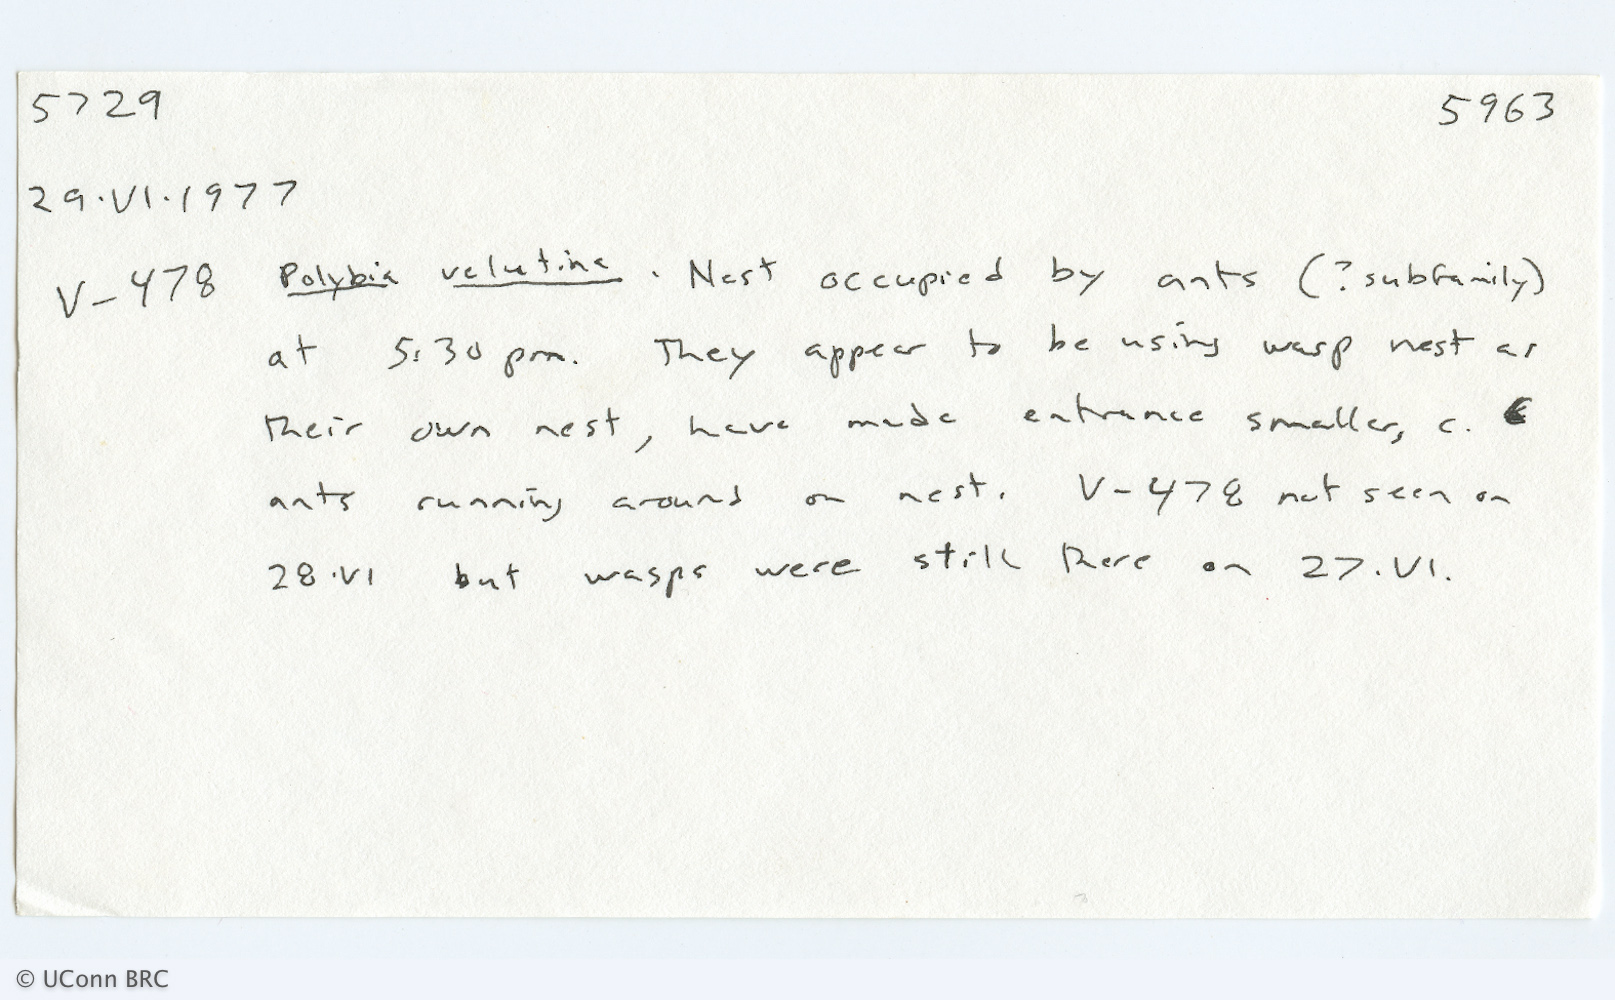 5729 5963
29.VI.1977
V-478 Polybia velutina. Nest occupied by ants (? subfamily)
at 5:30 pm. They appear to be using wasp nest as
their own nest, have made entrance smaller, c.
ants running around on nest. V-478 not seen on
28.VI but wasps were still there on 27.VI.
© UConn BRC